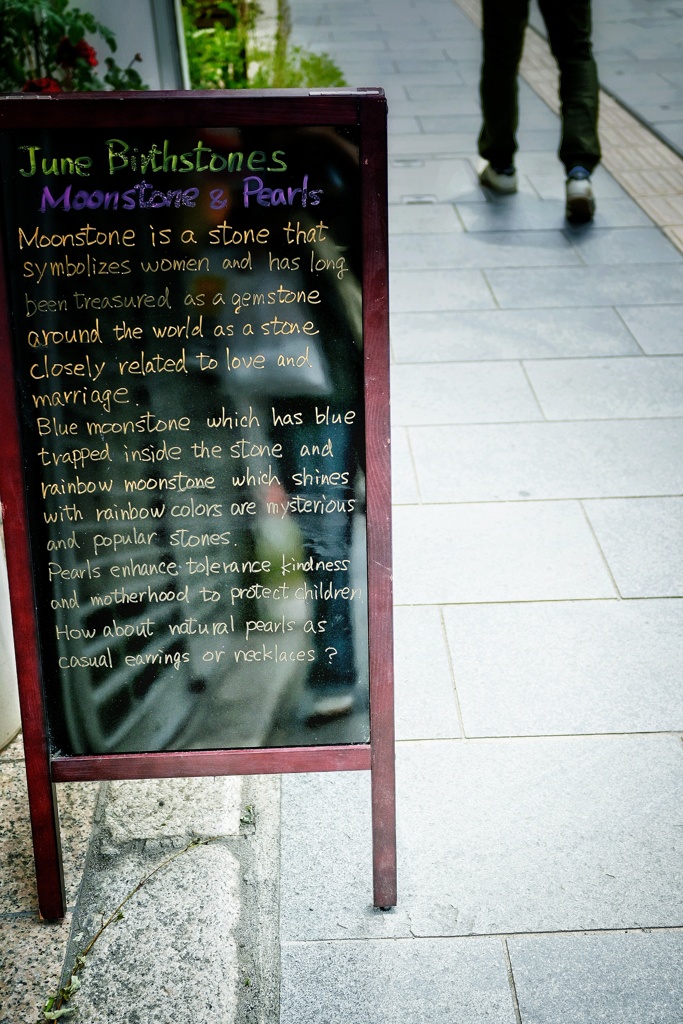 June Birthstones
Moonstone & Pearls
Moonstone is a stone that
symbolizes women and has long
been treasured as a gemstone
around the world as a stone
closely related to love and
marriage.
Blue moonstone which has blue
trapped inside the stone and
rainbow moonstone which shines
with rainbow colors are mysterious
and popular stones.
Pearls enhance tolerance kindness
and motherhood to protect children
How about natural pearls as
casual earrings or necklaces ?